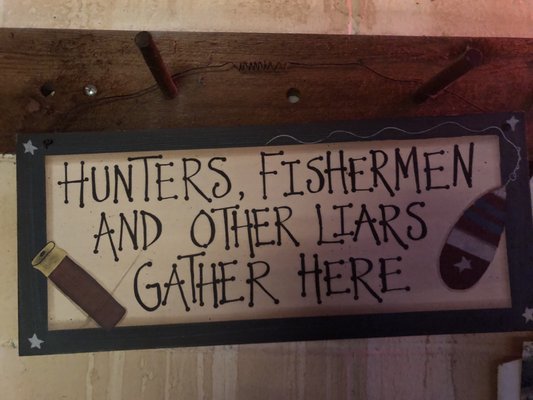 HUNTERS, FISHERMEN
AND OTHER LIARS
GATHER HERE